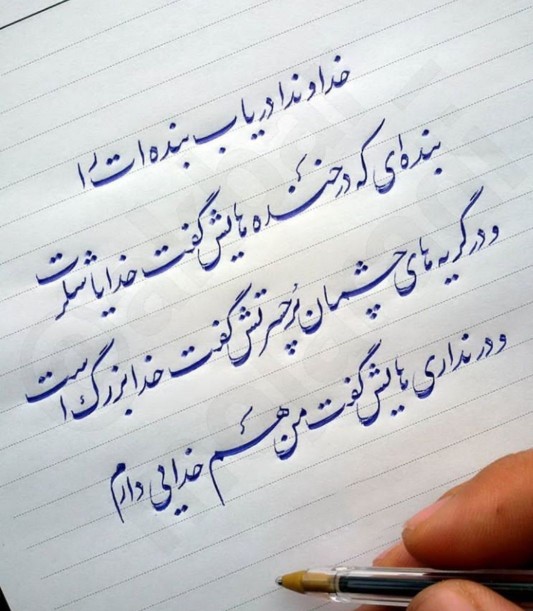 خداوندا دریاب بنده ات را
بنده‌ای که در خنده هایش گفت خدایا شکرت
و در گریه های چشمان پُر حسرتش گفت خدا بزرگ است
و در نداری هایش گفت من هم خدایی دارم